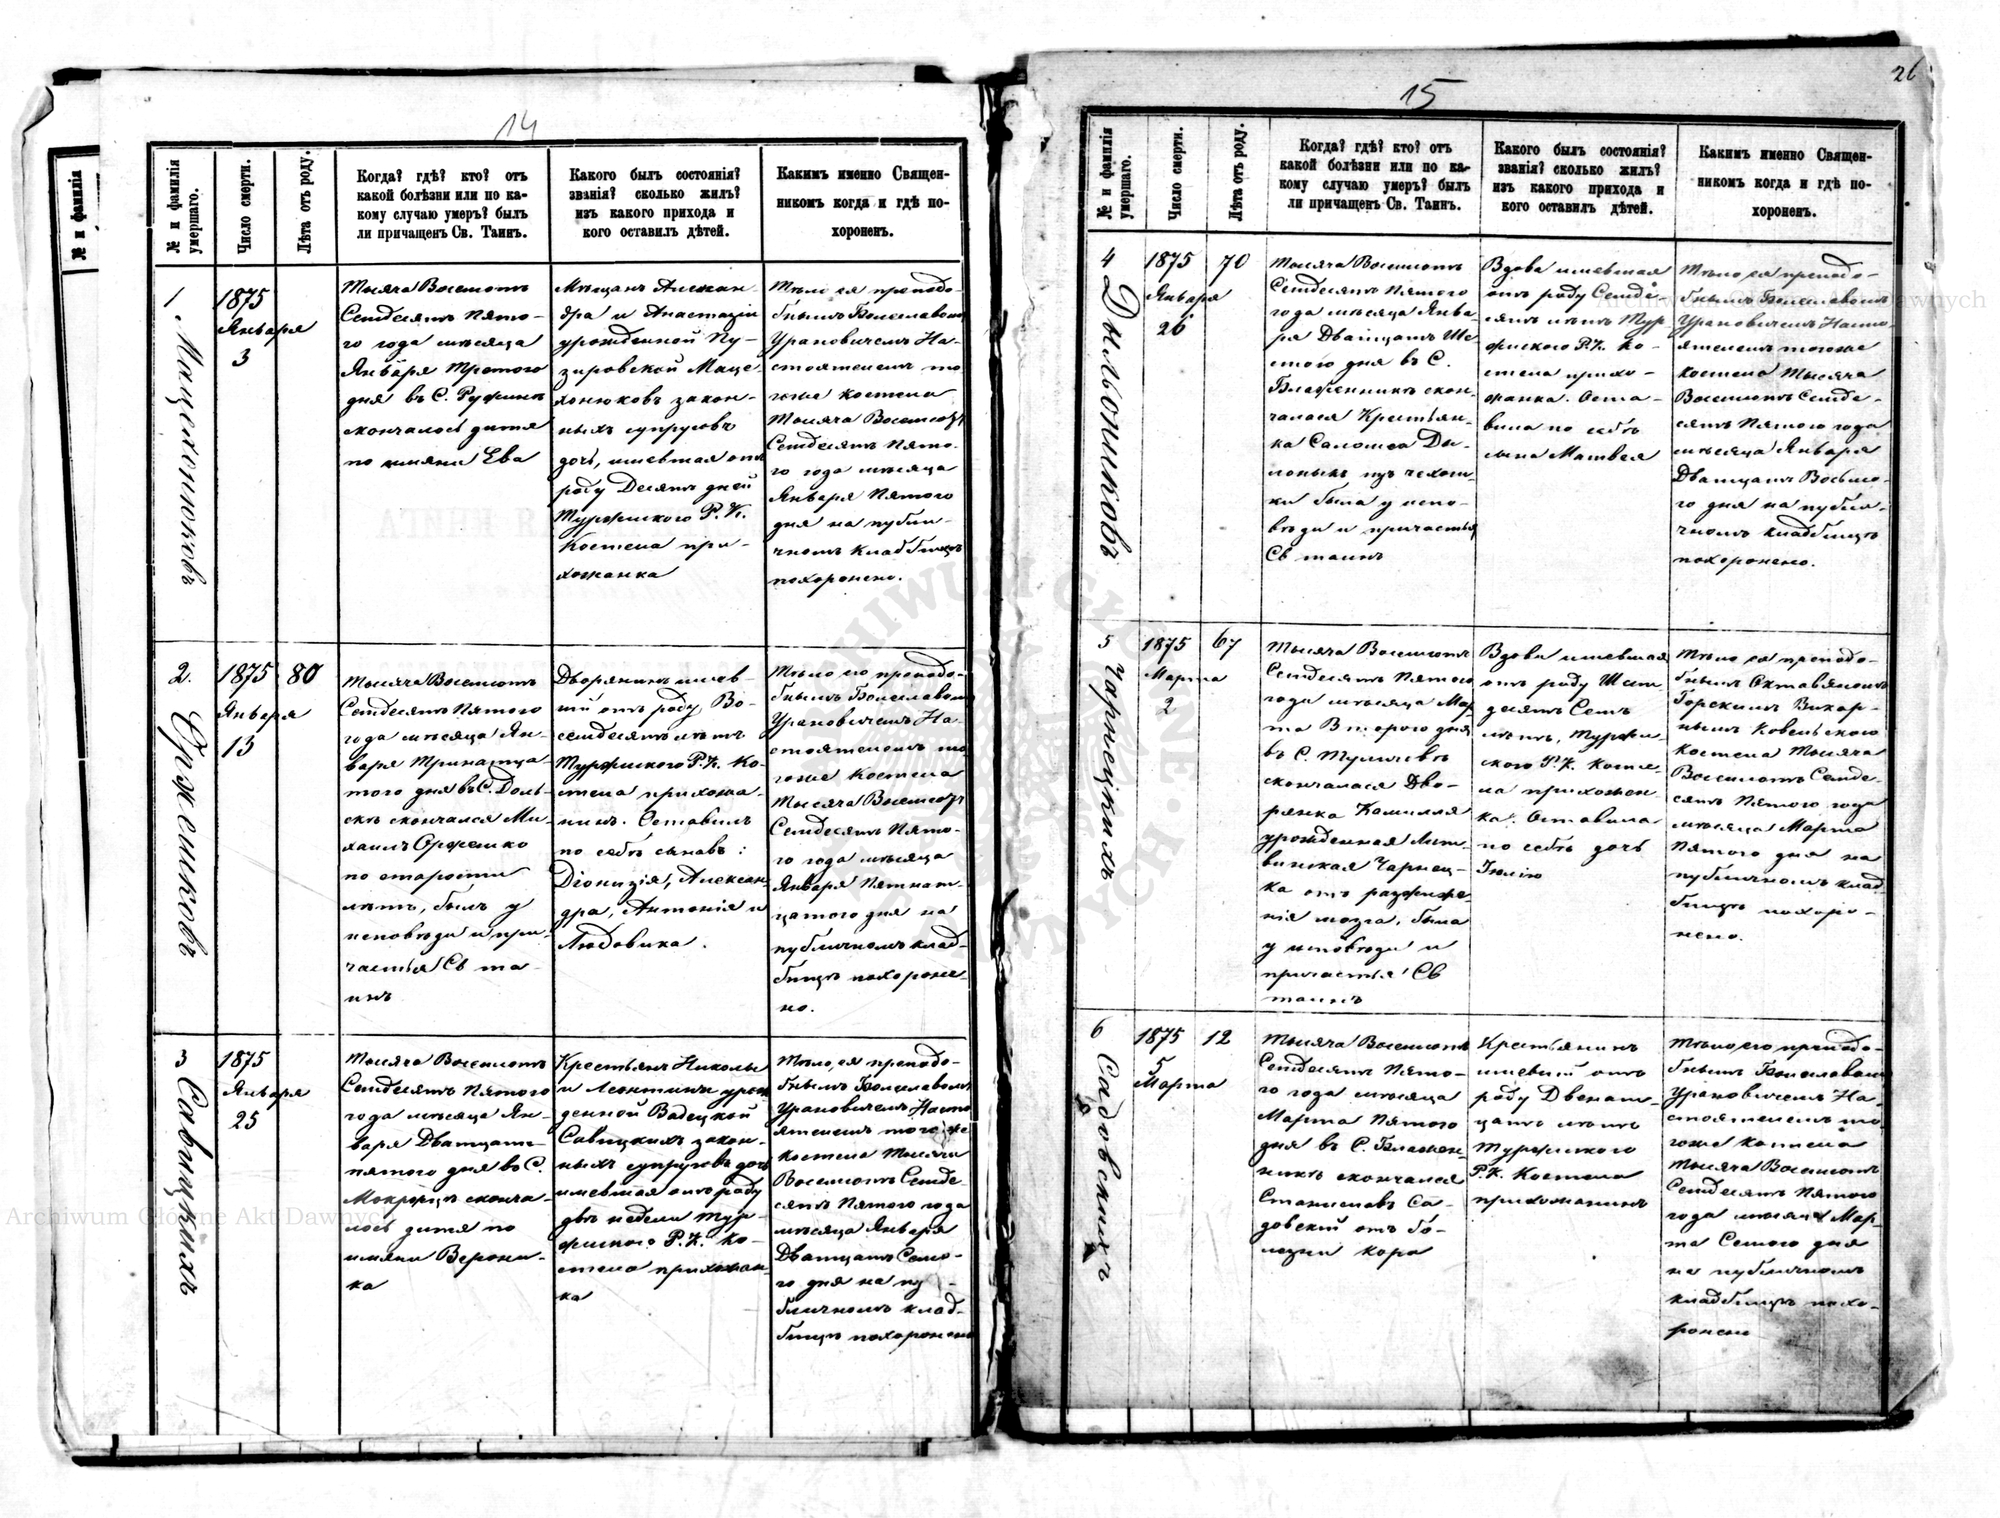 14
№ и фамилія умершаго.
Число смерти.
Лѣта отъ роду.
Когда? гдѣ? кто? отъ
какой болѣзни или по ка-
кому случаю умеръ? былъ
ли причащенъ Св. Таинъ.
Какого былъ состоянія?
званія? сколько жилъ?
изъ какого прихода и
кого оставилъ дѣтей.
Какимъ именно Священ-
никомъ когда и гдѣ по-
хороненъ.
1
1875
Января
3
Тысяча Восемьсотъ
Семдесятъ Пято-
го года мѣсяца
Января Третого
дня въ С.
скончалось дитя
по имяни Ева
Мѣщанъ Алексан-
дра и Анастазіи
урожденной Пу-
зировской Маце-
хонюковъ закон-
ныхъ супруговъ
дочь, имевшая отъ
роду Десять дней
Турійского Р. К.
Костела при-
хожанка
Тѣло ея преподо-
бнымъ Болеславомъ
Урановичемъ На-
стоятелемъ то-
гоже костела
Тысяча Восемсотъ
Семдесятъ Пято-
го года мѣсяца
Января Пятого
дня на публи-
чномъ кладбищѣ
похоронено.
2.
Оржешковъ
1875
Января
13
80
Тысяча Восемсотъ
Семдесятъ Пятого
года мѣсяца Ян-
варя Тринатца-
того дня въ С. Доль-
скѣ скончался Ми-
хаилъ Оржешко
по старости
лѣтъ, былъ у
исповѣди и при-
частья Св та-
инъ
Дворянинъ имев-
шій отъ роду Во-
семдесятъ лѣтъ
Турійского Р. К. Ко-
стела прихожа-
нинъ. Оставилъ
по себѣ сыновъ:
Діонизія, Алексан-
дра, Антонія и
Людовика.
Тѣло его преподо-
бнымъ Болеславомъ
Урановичемъ На-
стоятелемъ то-
гоже Костела
Тысяча Восемсотъ
Семдесятъ Пято-
го года мѣсяца
Января Пятнат-
цатого дня на
публичномъ клад-
бищѣ похороне-
но.
3
Савицкихъ
1875
Января
25
Тысяча Восемсотъ
Семдесятъ Пятого
года мѣсяца Ян-
варя Дватцать-
пятого дня въ С.
Мокрецъ сконча-
лось дитя по
имяни Верони-
ка
Крестьянъ Николы
и Леонтины урож
денной Вадецкой
Савицкихъ закон-
ныхъ супруговъ дочь
имевшая отъ роду
двѣ недели Тур-
ійского Р. К. Ко-
стела прихожан-
ка
Тѣло, ея преподо-
бнымъ Болеславомъ
Урановичемъ Насто
ятелемъ того же
костела Тысяча
Восемсотъ Семде
сятъ Пятого года
мѣсяца Января
Дватцать Семо-
го дня на пу-
бличномъ клад-
бищѣ похоронено
15
26
№ и фамилія умершаго.
Число смерти.
Лѣта отъ роду.
Когда? гдѣ? кто? отъ
какой болѣзни или по ка-
кому случаю умеръ? былъ
ли причащенъ Св. Таинъ.
Какого былъ состоянія?
званія? сколько жилъ?
изъ какого прихода и
кого оставилъ дѣтей.
Какимъ именно Священ-
никомъ когда и гдѣ по-
хороненъ.
4
1875
Января
26
70
Тысяча Восемсотъ
Семдесятъ Пятого
года мѣсяца Янва-
ря Дватцать Ше-
стого дня въ С.
скон-
чалася Крестьян-
ка Саломея Ды-
чехот-
ки была у испо-
вѣди и причастья
Св таинъ
Вдова имевшая
отъ роду Семде
сятъ лѣтъ Тур-
ійского Р. К. Ко-
стела прихо-
жанка. Оста-
вила по себѣ
сына Матвея
Тѣло ея преподо-
бнымъ Болеславомъ
Урановичемъ Насто-
ятелемъ тогоже
костела Тысяча
Восемсотъ Семде-
сятъ Пятого года
мѣсяца Января
Дватцать Восьмо-
го дня на публи-
чномъ кладбищѣ
похоронено.
5
Чарнецкихъ
1875
Марта
2
67
Тысяча Восемсотъ
Семдесятъ Пятого
года мѣсяца Мар
та Второго дня
въ С. Туличевъ
скончалася Дво-
рянка Камилля
урожденная Лит-
винская Чарнец-
ка отъ разжиже-
нія мозга, была
у исповѣди и
причастья Св
таинъ
Вдова имевшая
отъ роду Шест
десятъ Семь
лѣтъ, Турій-
ского Р. К. Косте-
ла прихожан-
ка. Оставила
по себѣ дочь
Юлію
Тѣло ея преподо-
бнымъ Октавяномъ
Горскимъ Викар-
нымъ Ковельского
Костела Тысяча
Восемсотъ Семде-
сятъ Пятого года
мѣсяца Марта
Пятого дня на
публичномъ клад-
бищѣ похоро-
нено.
6
Садовскихъ
1875
5
Марта
12
Тысяча Восемсотъ
Семдесятъ Пято-
го года мѣсяца
Марта Пятого
дня въ С.
скончался
Станиславъ Са-
довскій отъ бо-
лезни кора
Крестьянинъ
имевший отъ
роду Двенат-
цать лѣтъ
Турійского
Р. К. Костела
прихожанинъ
Тѣло, его преподо-
бнымъ Болеславомъ
Урановичемъ На-
стоятелемъ то-
гоже костела
Тысяча Восемсотъ
Семдесятъ Пятого
года мѣсяца Мар-
та Семого дня
на публичномъ
кладбищѣ похо-
ронено
Archiwum Główne Akt Dawnych